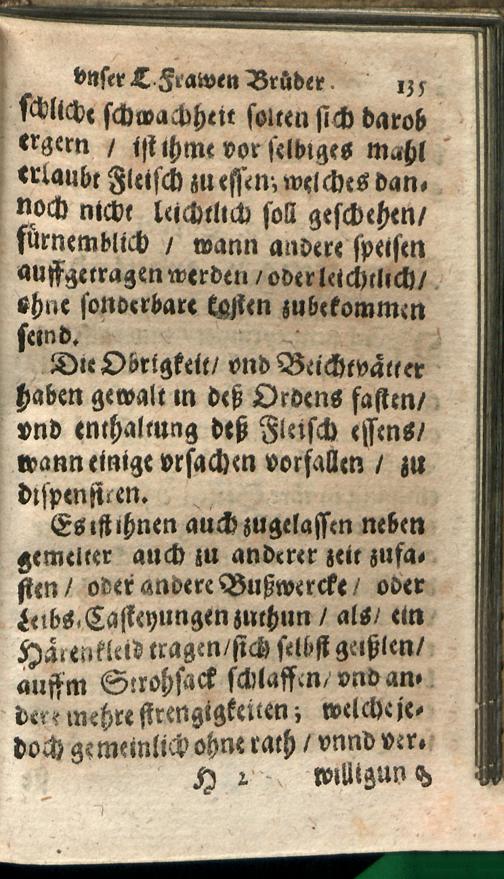 vnser L. Frawen Brüder. 135
schliche schwachheit solten sich darob
ergern / ist ihme vor selbiges mahl
erlaubt Fleisch zu essen; welches dan-
noch nicht leichtlich soll geschehen/
fürnemblich / wann andere speisen
auffgetragen werden / oder leichtlich/
ohne sonderbare kosten zubekommen
seind.
Die Obrigkeit/ vnd Beichtvätter
haben gewalt in deß Ordens fasten/
vnd enthaltung deß Fleisch essens/
wann einige vrsachen vorfallen / zu
dispensiren.
Es ist ihnen auch zugelassen neben
gemelter auch zu anderer zeit zufa-
sten / oder andere Bußwercke / oder
Leibs-Casteyungen zuthun / als/ ein
Härenkleid tragen/ sich selbst geißlen/
auffm Strohsack schlaffen/ vnd an-
dere mehre strengigkeiten; welche je-
doch gemeinlich ohne rath / vnnd ver-
H 2 willigung